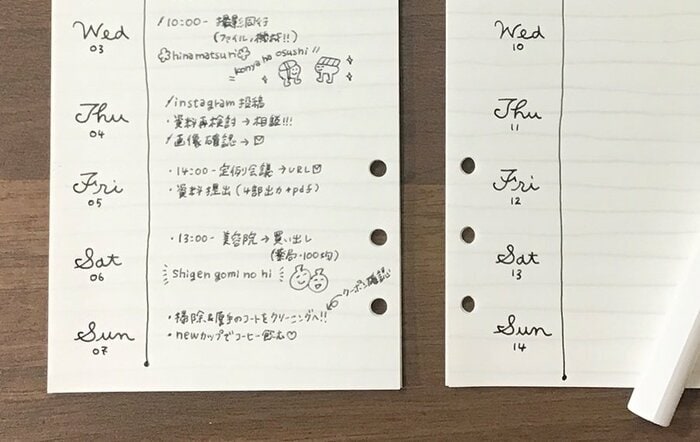 Wed
03
10:00- 撮影同行
(ファイル、機材!!)
hinamatsuri
konya ha osushi
Thu
04
instagram 投稿
・資料再検討→相談!!!
画像確認→
Fri
05
・14:00- 定例会議→URL
・資料提出(4部出力+pdf)
Sat
06
・13:00- 美容院→買い出し
(薬局・100均)
shigen gomi no hi
クーポン確認
Sun
07
・掃除&厚手のコートをクリーニングへ!!
・newカップでコーヒー飲む♡
Wed
10
Thu
11
Fri
12
Sat
13
Sun
14